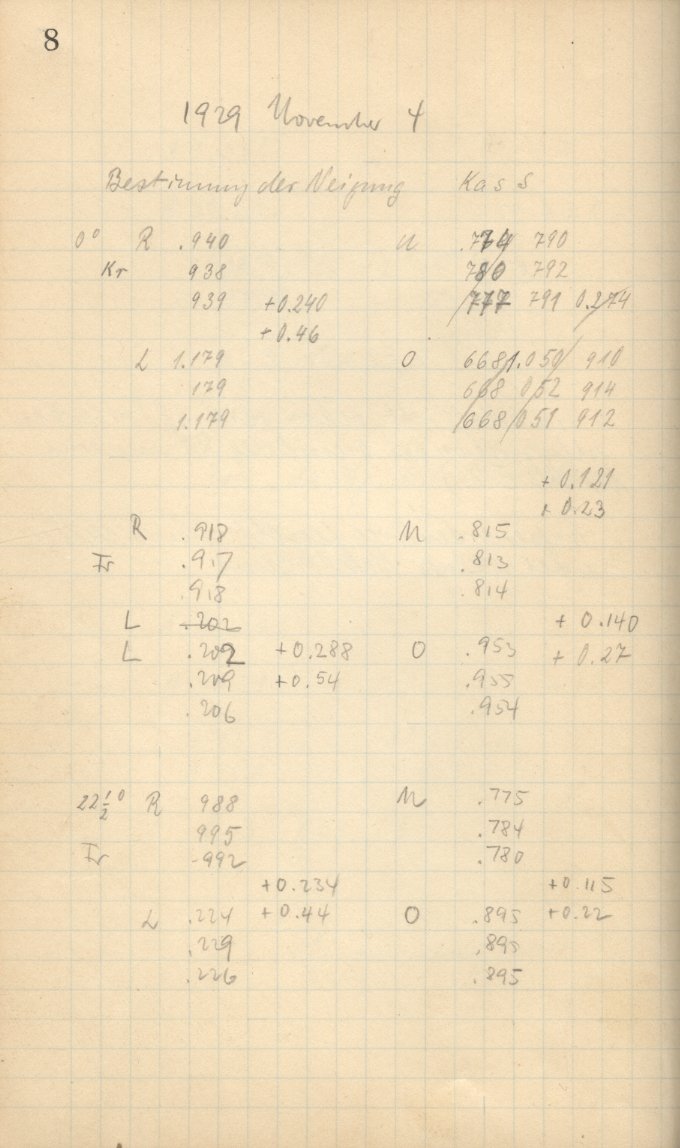 8
1929 November 4
Bestimmung der Neigung Kass
0° R .940 U .774 790
Kr 938 780 792
939 +0.240 777 791 0.274
+0.46
L 1.179 O 668 1.050 910
179 668 052 914
1.179 668 051 912
+0.121
+0.23
R .918 U .815
Fr .917 .813
.918 .814
L .202 +0.140
L .202 +0.288 O .953 +0.27
.209 +0.54 .955
.206 .954
22½° R 988 U .775
995 .784
Fr .992 .780
+0.234 +0.115
L .224 +0.44 O .895 +0.22
.229 .895
.226 .895